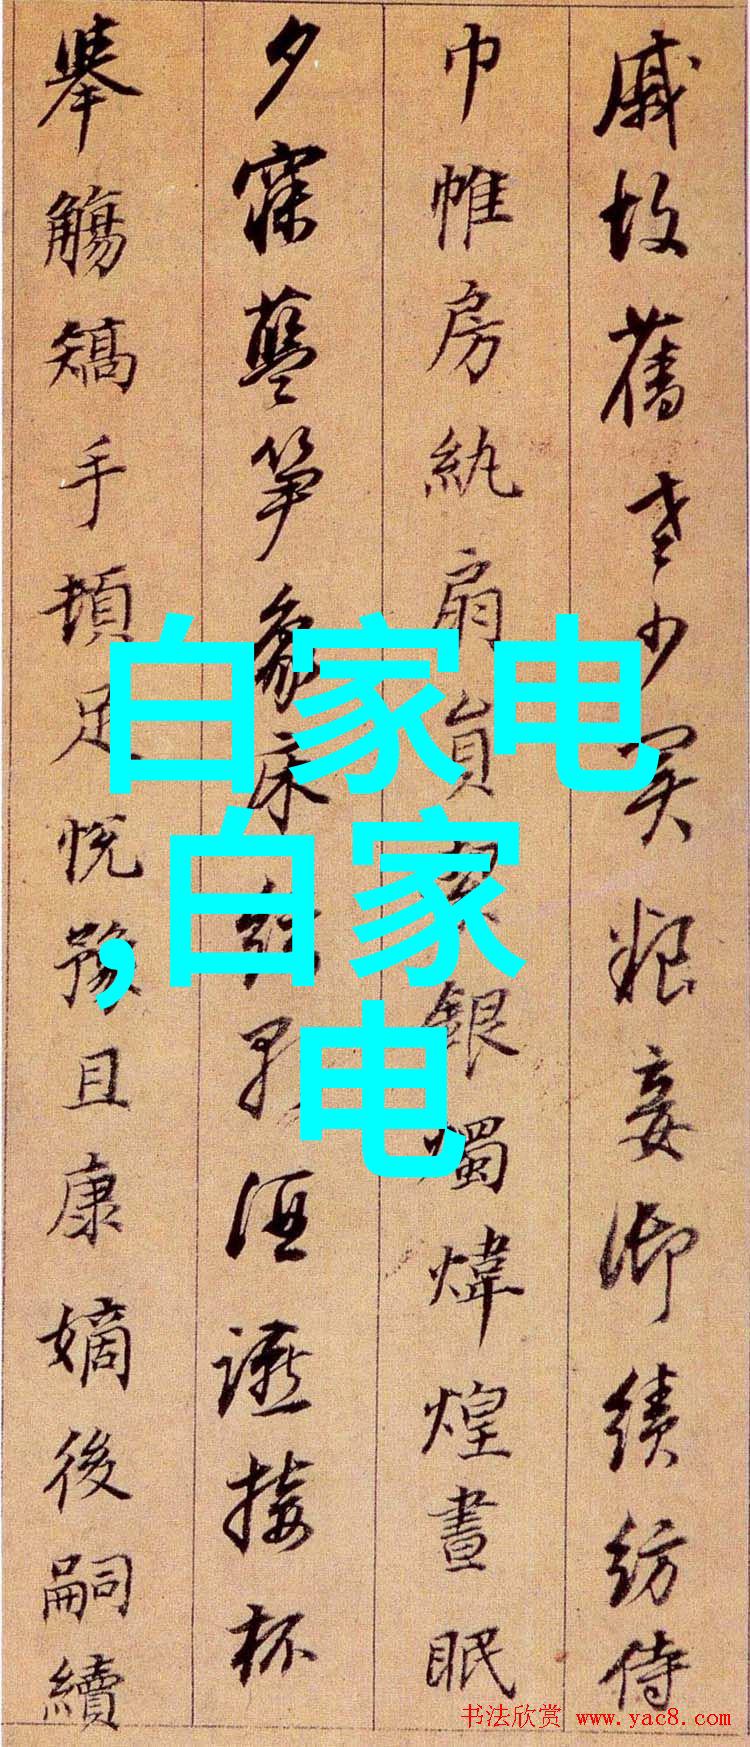 戚故舊老少異粮妾御績紡侍
巾帷房紈扇員銀燭煒煌晝眠
夕寐藍笋象床絃歌酒讌接杯
舉觴矯手頓足悅豫且康嫡後嗣續
白家电
,白家
电
书法欣赏 www.yac8.com